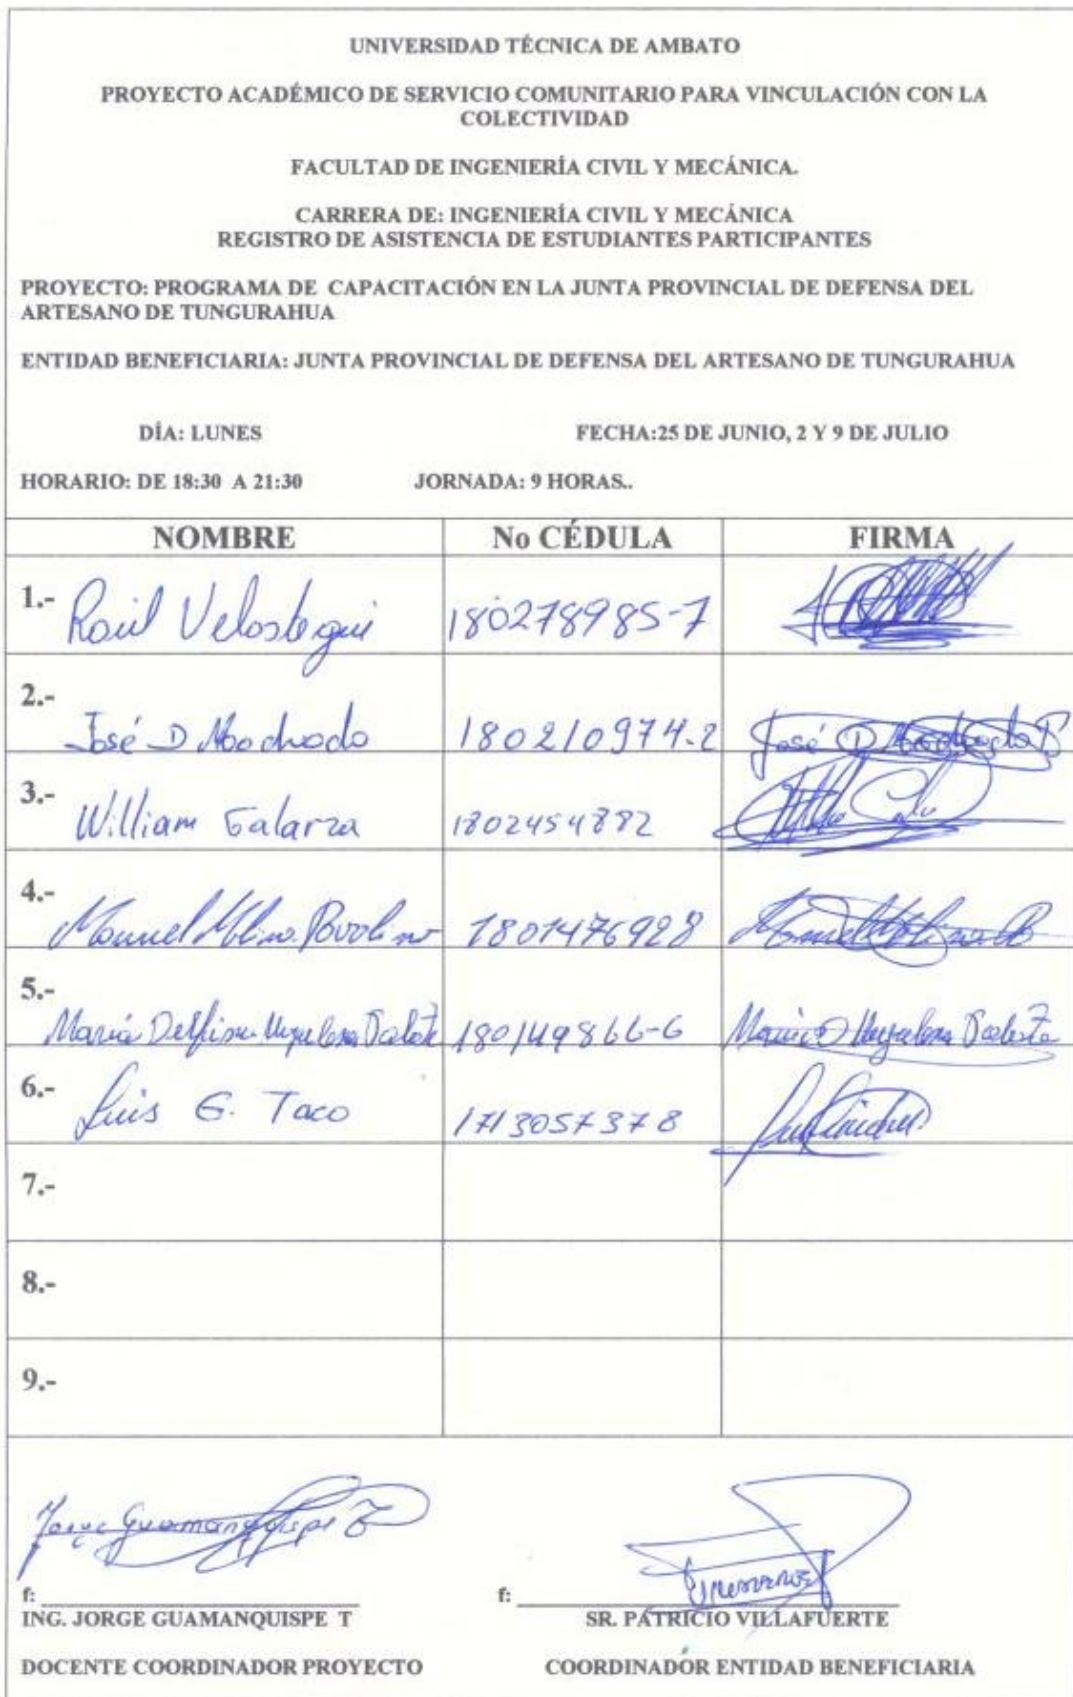 UNIVERSIDAD TÉCNICA DE AMBATO
PROYECTO ACADÉMICO DE SERVICIO COMUNITARIO PARA VINCULACIÓN CON LA
COLECTIVIDAD
FACULTAD DE INGENIERÍA CIVIL Y MECÁNICA.
CARRERA DE: INGENIERÍA CIVIL Y MECÁNICA
REGISTRO DE ASISTENCIA DE ESTUDIANTES PARTICIPANTES
PROYECTO: PROGRAMA DE CAPACITACIÓN EN LA JUNTA PROVINCIAL DE DEFENSA DEL
ARTESANO DE TUNGURAHUA
ENTIDAD BENEFICIARIA: JUNTA PROVINCIAL DE DEFENSA DEL ARTESANO DE TUNGURAHUA
DÍA: LUNES FECHA:25 DE JUNIO, 2 Y 9 DE JULIO
HORARIO: DE 18:30 A 21:30 JORNADA: 9 HORAS..
NOMBRE No CÉDULA FIRMA
1.- Raúl Velastegui 180278985-7
2.- José D Machado 180210974-2 José D Machado
3.- William Galarza 1802454882
4.- Manuel 1801476928 Manuel
5.- María 180149866-6 María D
6.- Luis G. Taco 1713057378
7.-
8.-
9.-
Jorge Guamanquispe T
f: f:
ING. JORGE GUAMANQUISPE T SR. PATRICIO VILLAFUERTE
DOCENTE COORDINADOR PROYECTO COORDINADOR ENTIDAD BENEFICIARIA